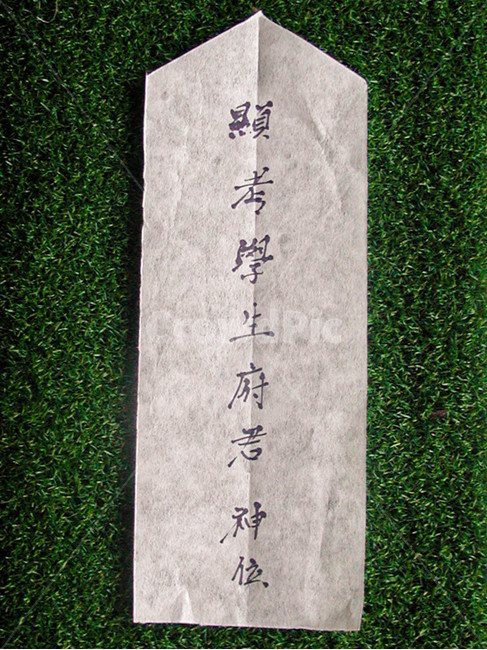 顯考學生府君 神位
CrowdPic